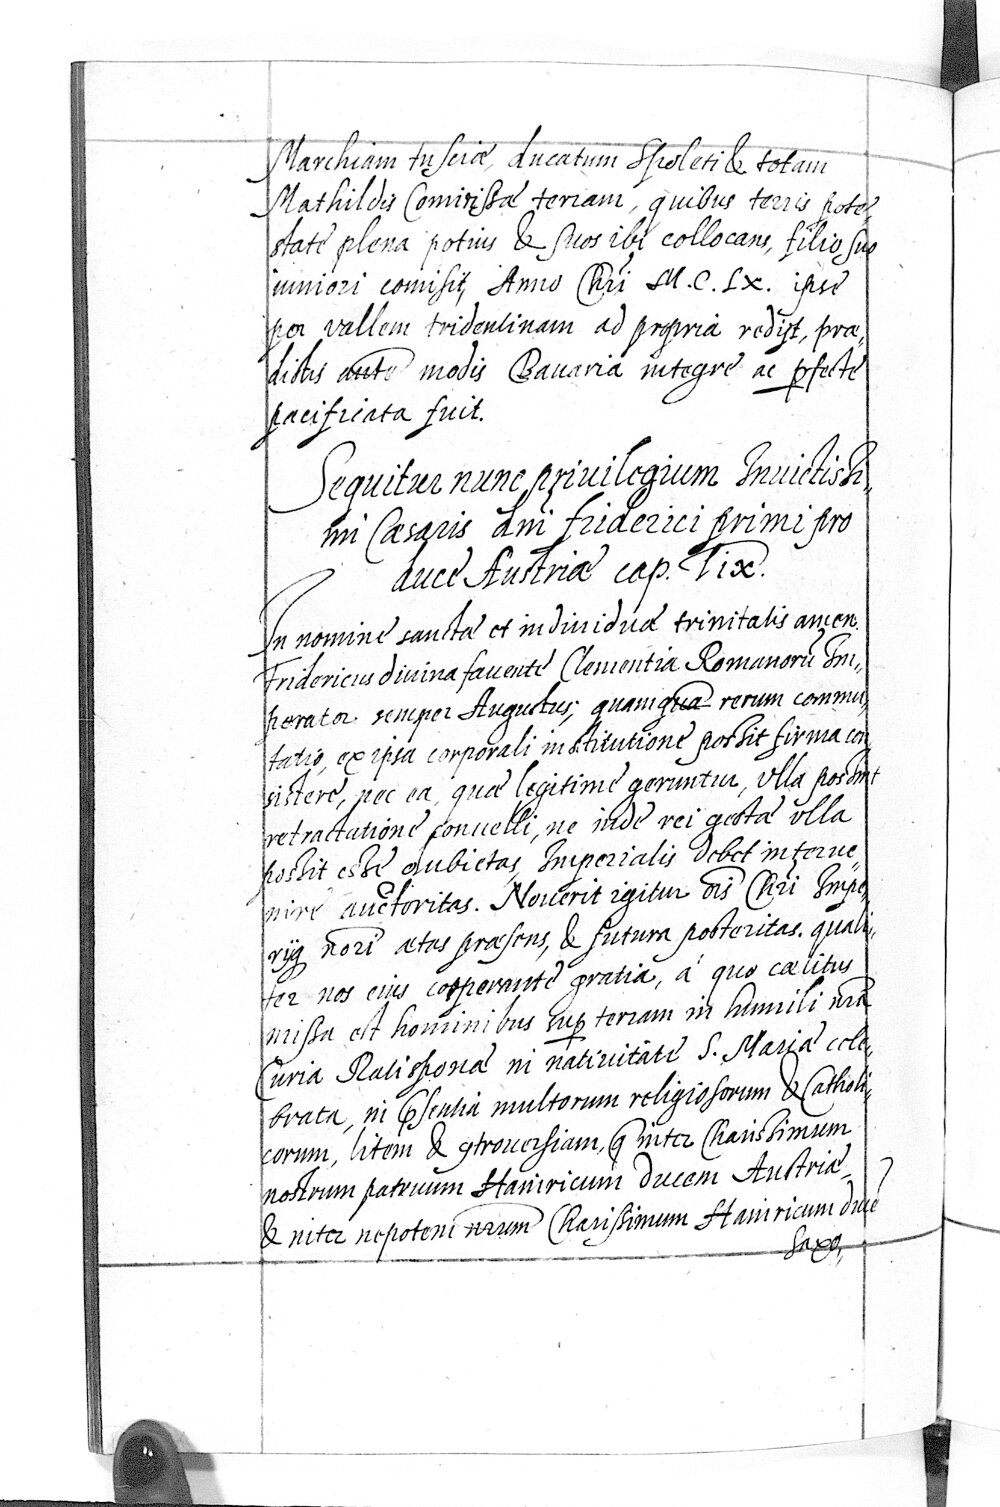 Marchiam tusciæ, ducatum Spoleti & totam
Mathildis Comitissæ terram, quibus terris pote,
state plena potius & suos ibi collocans, filio suo
iuniori comisit, Anno Chri M.C.LX. ipse
per vallem tridentinam ad propria redijt, præ,
dictis aute modis Bauaria integre ac pfecte
pacificata fuit.
Sequitur nunc priuilegium Inuictissi,
mi Cæsaris dni friderici primi pro
duce Austriæ cap. Lix.
In nomine sanctæ et indiuiduæ trinitatis amen.
Fridericus diuina fauente Clementia Romanorū Im,
perator semper Augustus, quamqua rerum commu,
tatio, ex ipsa corporali institutione possit firma con
sistere, nec ea, quæ legitime geruntur, vlla possint
retractatione conuelli, ne inde rei gestæ vlla
possit esse dubietas, Imperialis debet interue,
nire auctoritas. Nouerit igitur ois Chri Impe,
rijq nori ætas præsens, & futura posteritas. quali,
ter nos eius cooperante gratia, á quo cælitus
missa est hominibus sup terram in humili nra
Curia Ratisponæ in natiuitate S. Mariæ cele,
brata, in psentia multorum religiosorum & Catholi,
corum, litem & gtrouersiam, q inter Charissimum
nostrum patruum Hainricum Ducem Austriæ,
& inter nepotem nrum Charissimum Hainricum duce
Saxo,